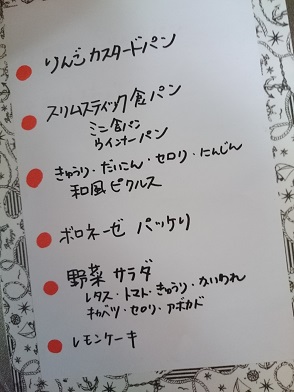 りんごカスタードパン
スリムスティック食パン
ミニ食パン
ウインナーパン
きゅうり・だいこん・セロリ・にんじん
和風ピクルス
ボロネーゼ パッケリ
野菜サラダ
レタス・トマト・きゅうり・かいわれ
キャベツ・セロリ・アボカド
レモンケーキ